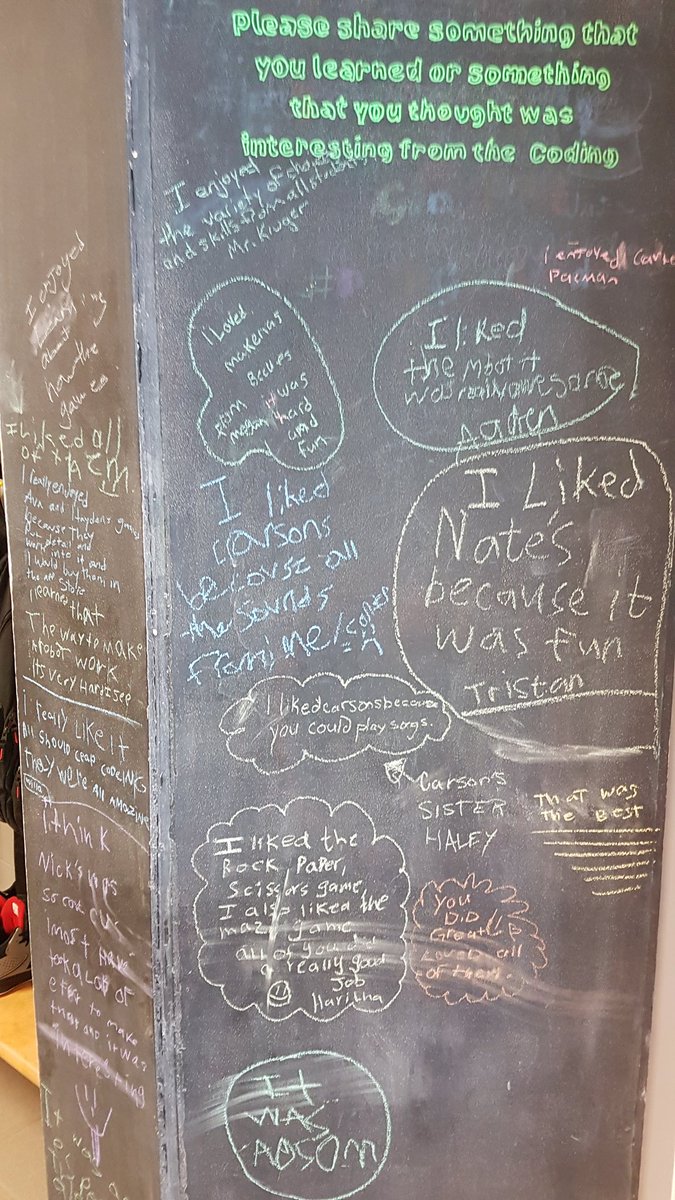 Please share something that
you learned or something
that you thought was
interesting from the Coding
I enjoyed
the variety of
and skills from all
Mr. Kruger
i enjoyed
Pacman
I Loved
makenas
Becaues
it was
From
megan
hard
and
Fun
I liked
the mbot it
was really awesome
Aaden
I liked
carsons
because all
the sounds
From
I Liked
Nate's
because it
was fun
Tristan
I liked carsons because
you could play songs.
Carson's
SISTER
HALEY
THAT WAS
THE BEST
I liked the
Rock Paper,
Scissors game,
I also liked the
maze game
all of you did
a really good
Job
Haritha
You
DID
Great!
Love all
of them.
It
WAS
AOSOM
I enjoyed
about
how the
game
I liked all
OF THEM
I really enjoyed
Ava and Hayden's game
because they
Put detail and
work into it and
I would buy them in
the APP Store
I learned that
The way to make
a robot work
Its very Hard
i really LIKE IT
All should ceap codeING
They we're all AMAZING
i think
Nick's was
so cool
i most have
took A Lot of
efert to make
that and it was
interesting
It was